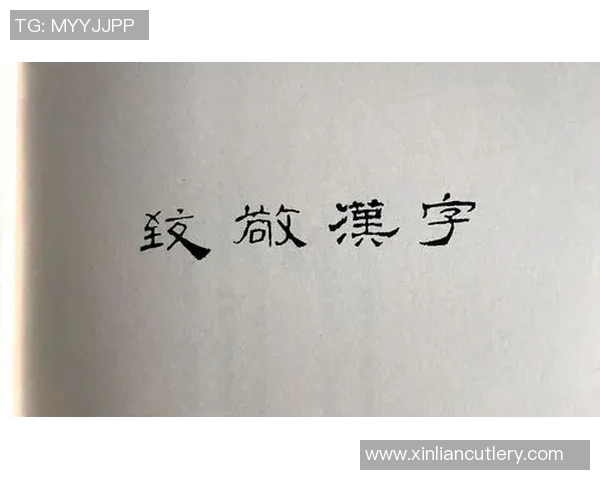 TG: MYYJJPP
致敬漢字
www.xinliancutlery.com